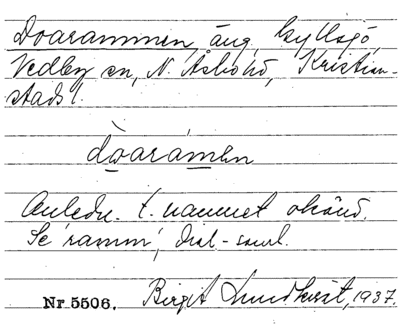 Doarammen, äng, Gyllsjö,
Vedby sn, N. Åsbo hd, Kristian-
stads l.
dòaràmen
Anledn. t. namnet okänd.
Se 'ramm', dial-saml.
Nr 5506. Birgit Lundkvist, 1937.